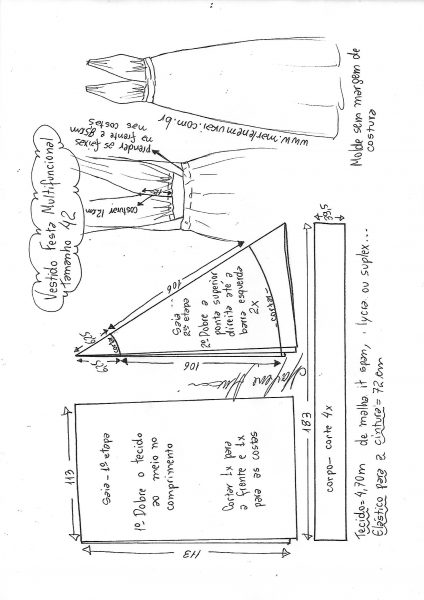 Vestido Festa Multifuncional
Tamanho 42
costurar 12cm
prender as faixas
na frente e
nas costas
www.marlenemukai.com.br
Molde sem margem de
costura
Saia - 1ª etapa
1º Dobre o tecido
ao meio no
comprimento
Cortar 1x para
a frente e 1x
para as costas
113
113
Saia
2ª etapa
2º Dobre a
ponta superior
direita até a
barra esquerda
2x
cortar
106
106
183
corpo - corte 4x
Tecido = 4,70m de malha it span, lycra ou suplex...
Elástico para a cintura = 72cm